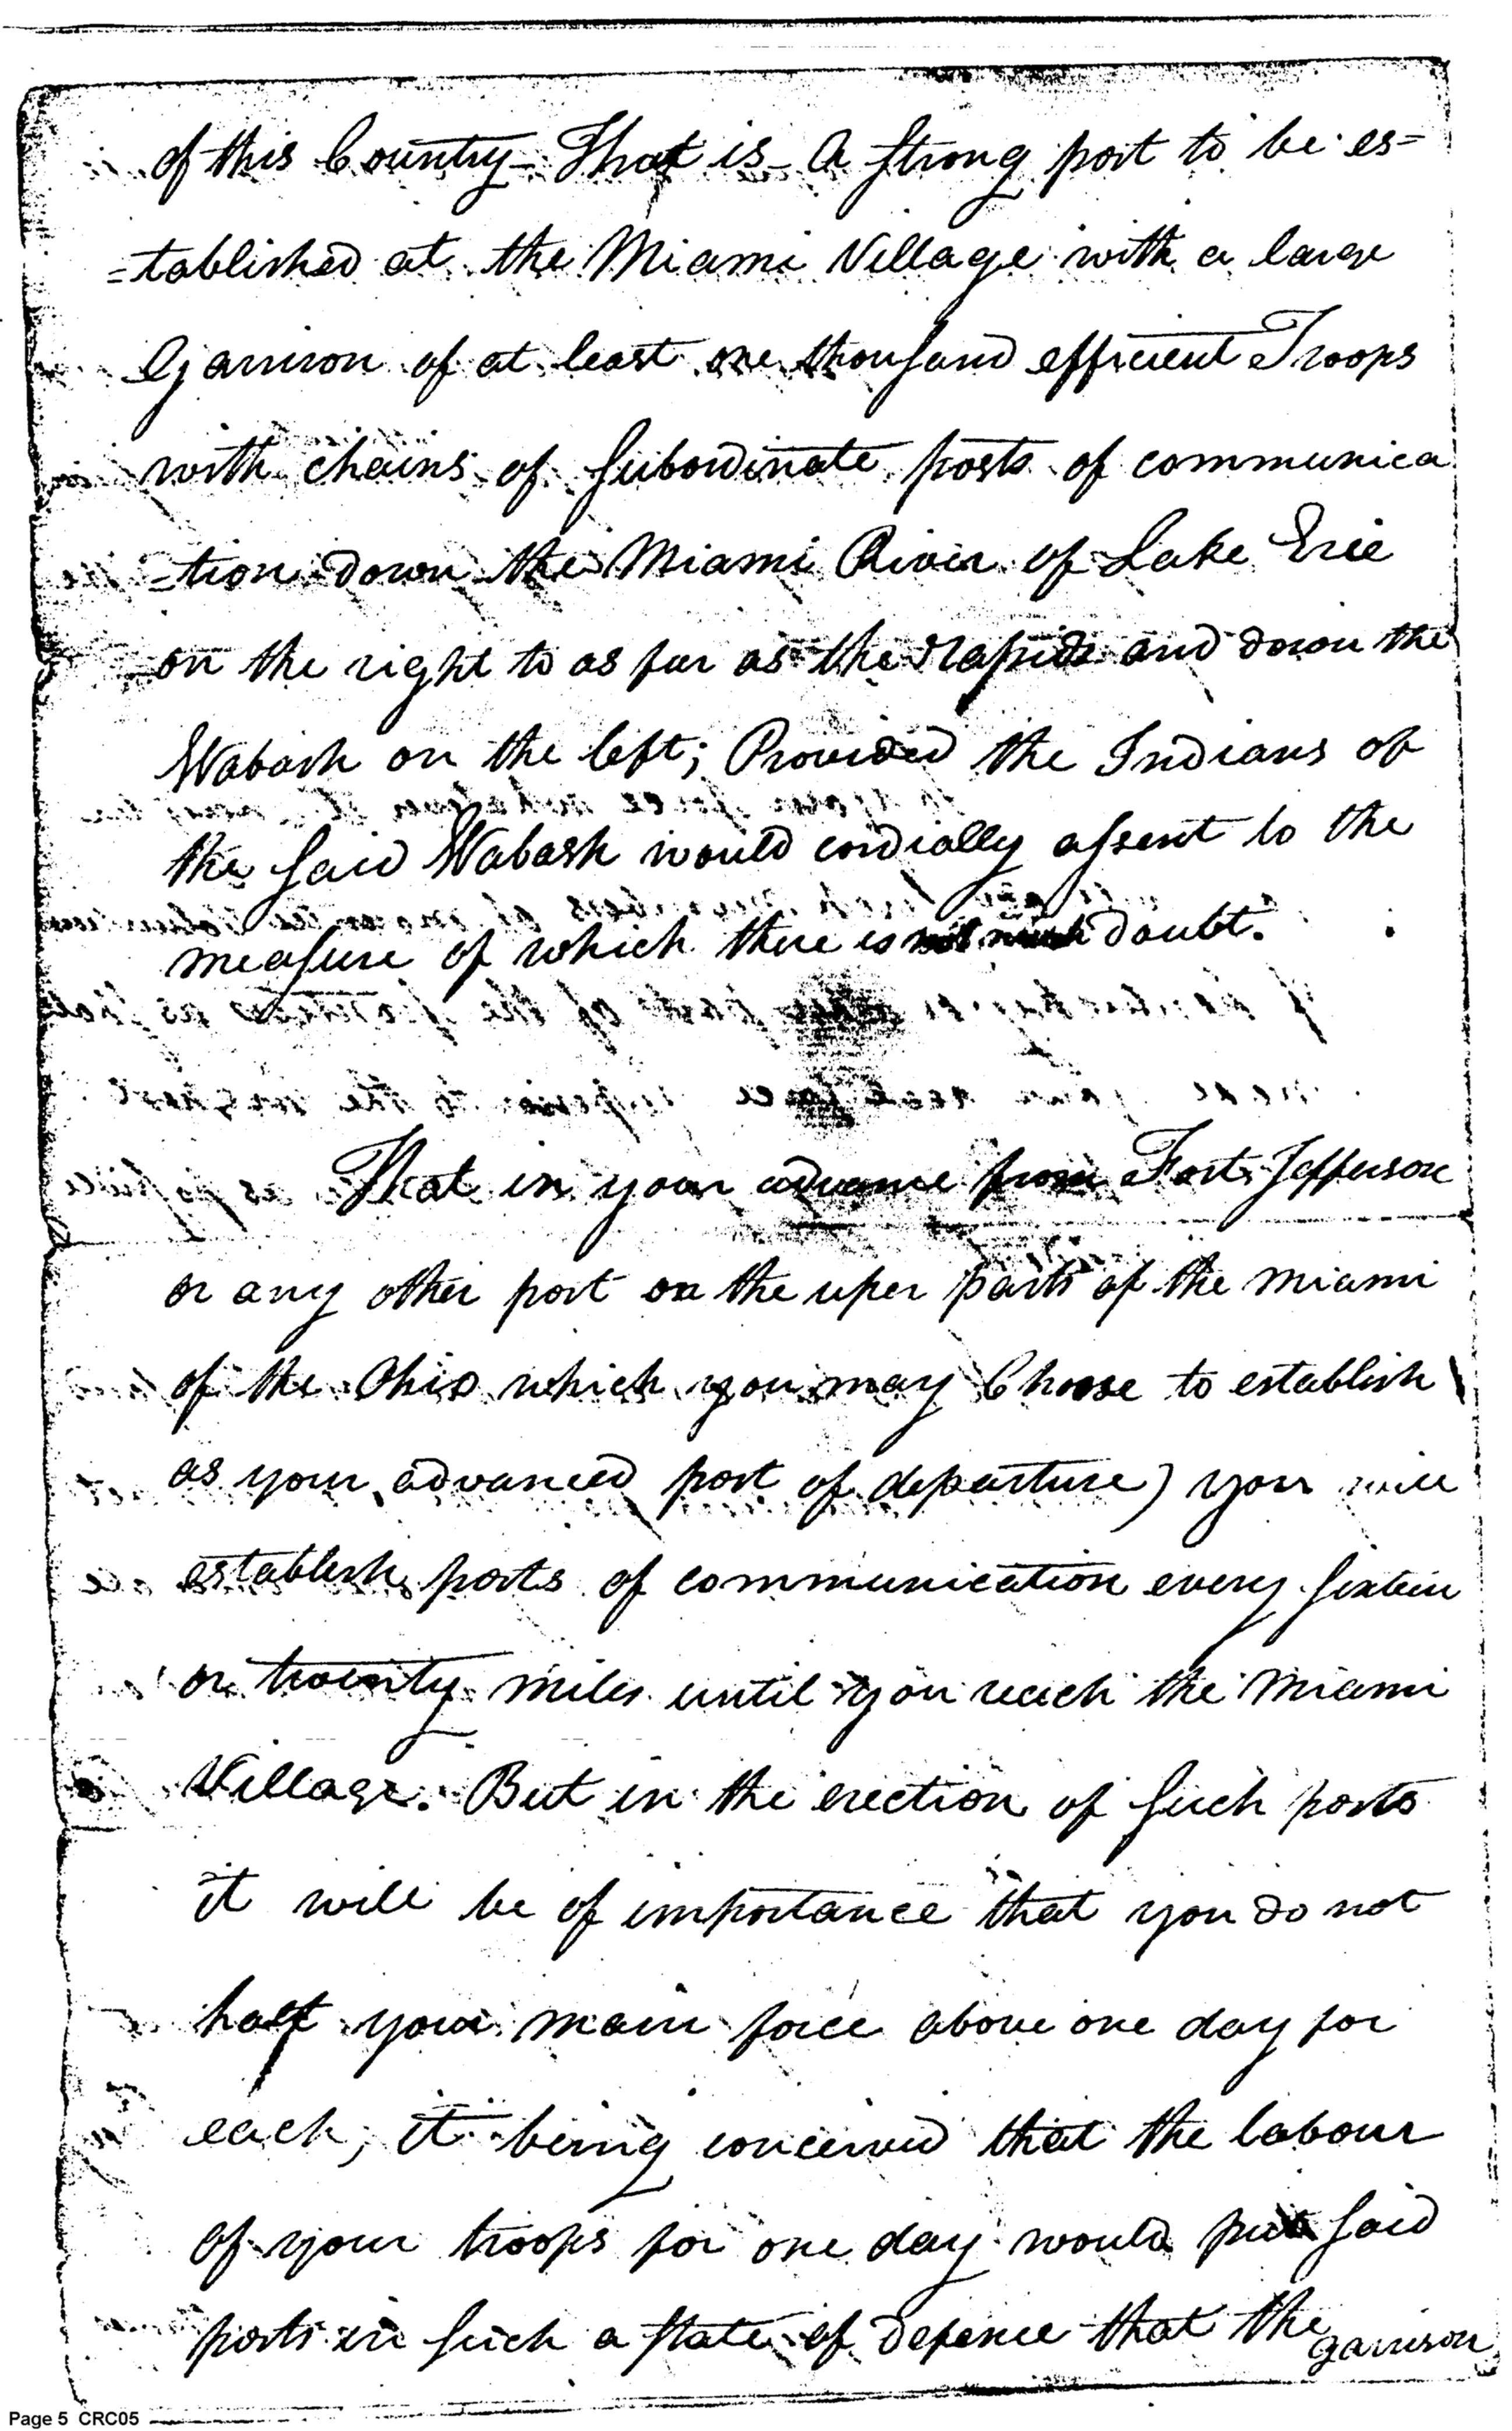 of this Country - That is - A strong post to be es=
=tablished at the Miami Village with a large
Garrison of at least one thousand efficient Troops
with chains of subordinate posts of communica
=tion down the Miami River of Lake Erie
on the right to as far as the rapids and down the
Wabash on the left; Provided the Indians of
the said Wabash would cordially assent to the
measure of which there is doubt.
That in your advance from Fort Jefferson
or any other post on the uper parts of the miami
of the Ohio which you may Choose to establish
as your advanced post of departure) you will
establish posts of communication every sixteen
or twenty miles until you reach the Miami
Village. But in the erection of such posts
it will be of importance that you do not
halt your main force above one day for
each, it being conceived that the labour
of your troops for one day would put said
posts in such a state of defence that the
garrison
Page 5 CRC05